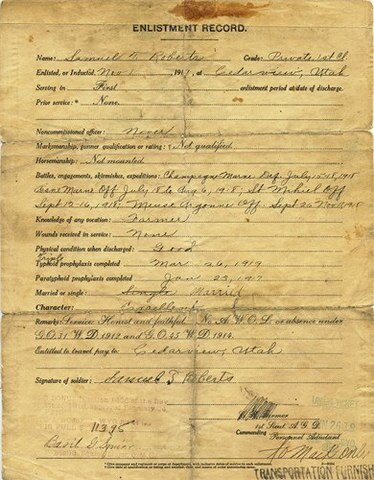 ENLISTMENT RECORD.
Name: Samuel T Roberts Grade: Private 1st Cl.
Enlisted, or Inducted, Nov 1, 1917, at Cedarview, Utah
Serving in First enlistment period at date of discharge.
Prior service: * None.
Noncommissioned officer: Never
Marksmanship, gunner qualification or rating: † Not qualified.
Horsemanship: Not mounted
Battles, engagements, skirmishes, expeditions: Champagne Marne Def. July 15-18, 1918
Aisne Marne Off July 18 to Aug 6, 1918, St Mihiel Off
Sept 12-16, 1918, Meuse Argonne Off. Sept 26 Nov 1918
Knowledge of any vocation: Farmer
Wounds received in service: None
Physical condition when discharged: Good
Typhoid prophylaxis completed Mar 26, 1919
Paratyphoid prophylaxis completed Jan 23, 1917
Married or single: Single Married
Character: Excellent
Remarks: Service: Honest and faithful: No A.W.O.L. or absence under
G.O. 31 W.D. 1912 and G.O. 45 W.D. 1914.
Entitled to travel pay to: Cedarview, Utah
Signature of soldier: Samuel T Roberts
11398
1st Lieut. A.G.D.
Commanding Personnel Adjutant
TRANSPORTATION FURNISH